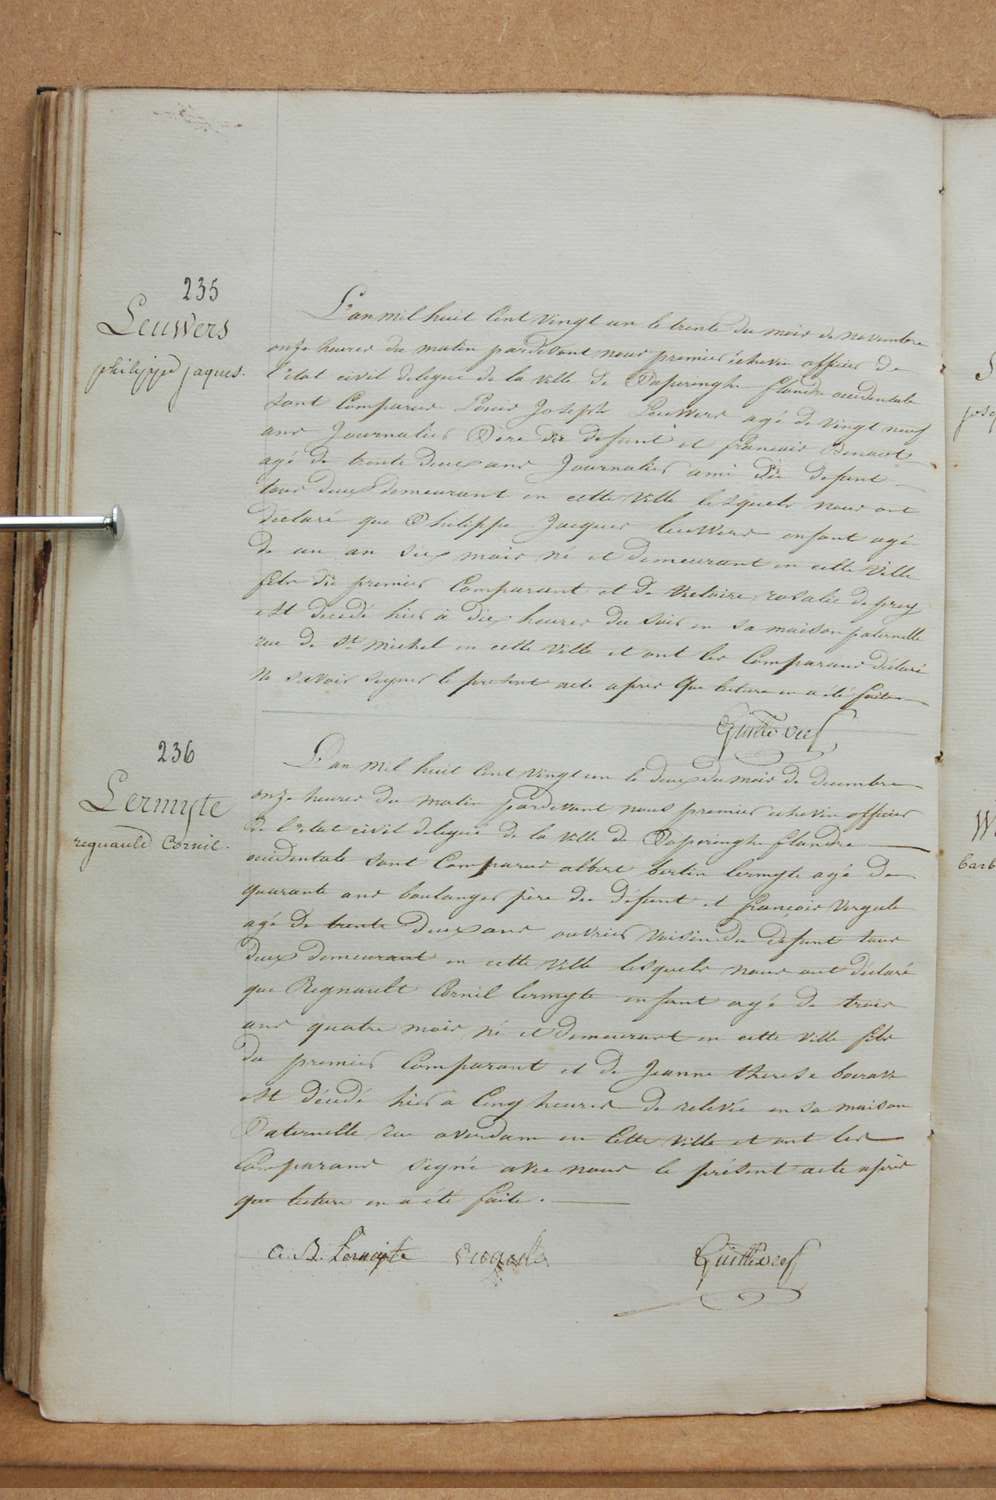 235
Leuwers
philippe jaques.
L'an mil huit cent vingt un le trente du mois de novembre
onze heures du matin pardevant nous premier échevin officier de
l'état civil delegué de la ville de Poperinghe flandre occidentale
sont comparus Louis Joseph Leuwers agé de vingt neuf
ans Journalier Père du defunt et françois Benaut
agé de trente deux ans Journalier ami du defunt
tous deux demeurant en cette ville lesquels nous ont
declaré que Philippe Jacques Leuwers enfant agé
de un an six mois né et demeurant en cette Ville
fils du premier Comparant et de Victoire rosalie
est decedé hier à dix heures du soir en sa maison paternelle
rue de St Michel en cette Ville et ont les Comparans déclaré
ne savoir signer le présent acte apres que lecture en a été faite
236
Lermyte
regnauld Cornil.
L'an mil huit cent vingt un le deux du mois de decembre
onze heures du matin pardevant nous premier echevin officier
de l'etat civil delegué de la ville de Poperinghe flandre
occidentale sont Comparus albert bertin lermyte agé de
quarante ans boulanger père du défunt et françois Vergule
agé de trente deux ans ouvrier Voisin du defunt tous
deux demeurant en cette Ville lesquels nous ont déclaré
que Regnault Cornil lermyte enfant agé de trois
ans quatre mois né et demeurant en cette Ville fils
du premier Comparant et de Jeanne therese
est décédé hier à cinq heures de relevée en sa maison
Paternelle rue overdam en cette Ville et ont les
Comparans signé avec nous le présent acte après
que lecture en a été faite.
A. B. Lermyte